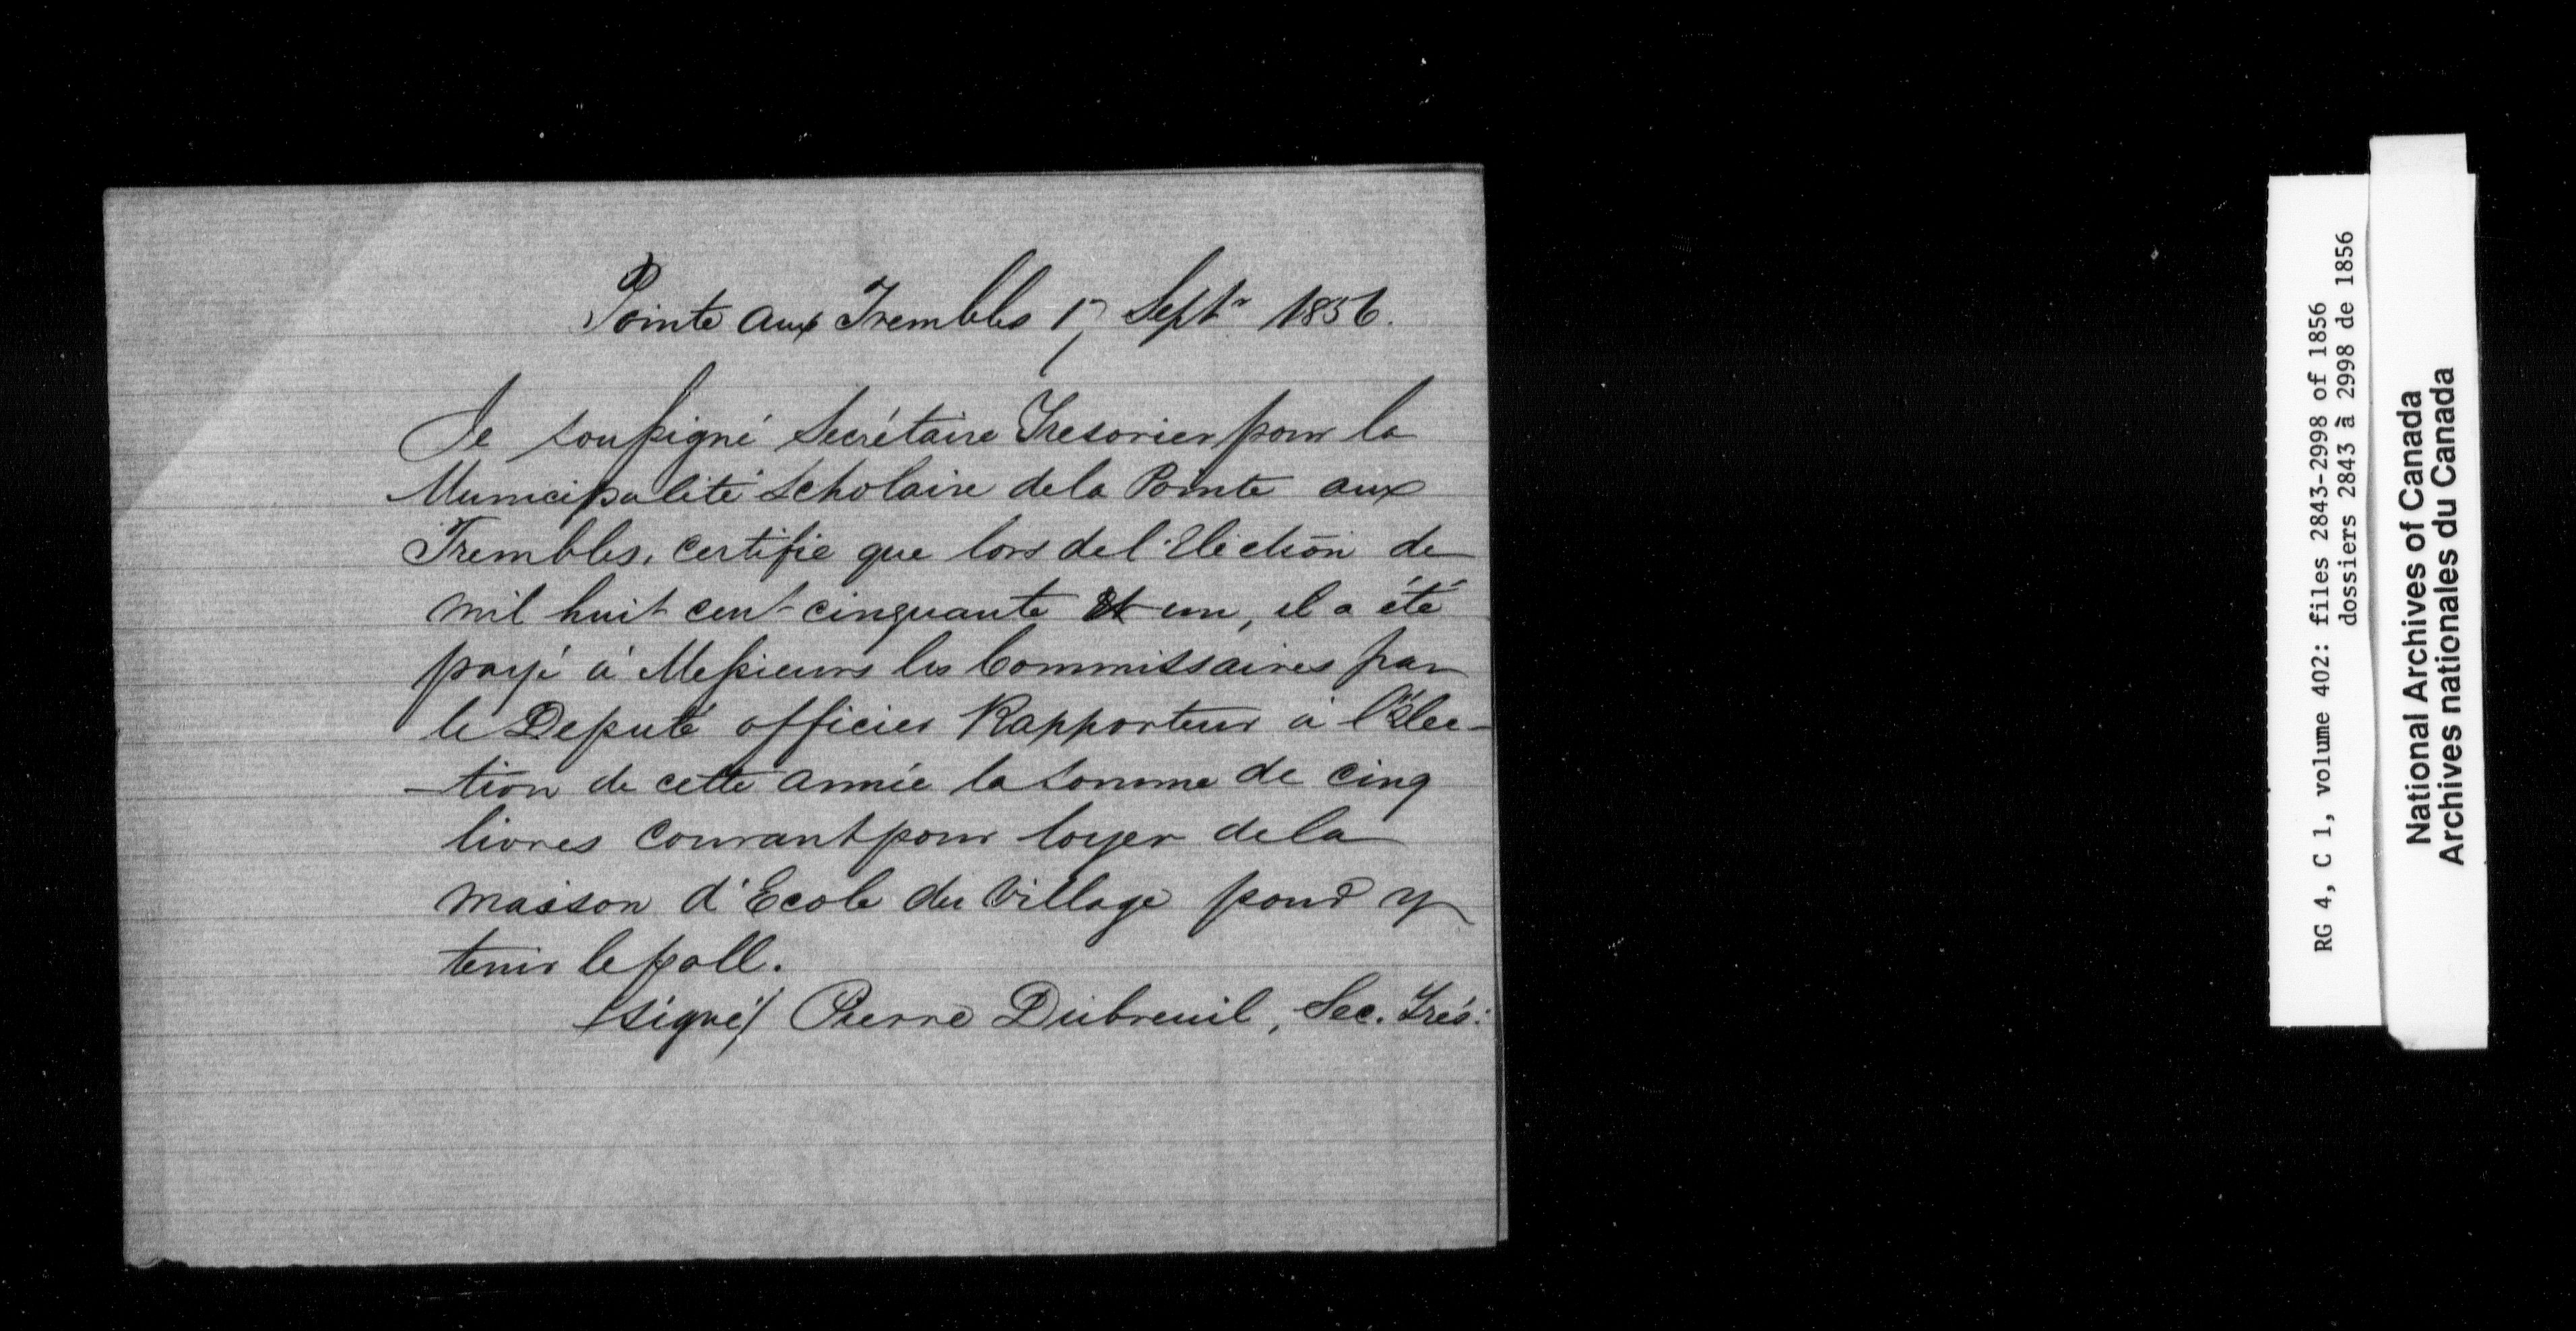 Pointe aux Trembles 17 Septr 1856.
Je soussigné Secrétaire Tresorier pour la
Municipalité Scholaire de la Pointe aux
Trembles, certifie que lors de l'Election de
mil huit cent cinquante et un, il a été
payé à Messieurs les Commissaires par
le Deputé officier Rapporteur à l'élec-
-tion de cette année la somme de cinq
livres courant pour loyer de la
maison d'Ecole du Village pour y
tenir le poll.
(signé) Pierre Dubreuil, Sec. Trés:
RG 4, C 1, volume 402: files 2843-2998 of 1856
dossiers 2843 à 2998 de 1856
National Archives of Canada
Archives nationales du Canada